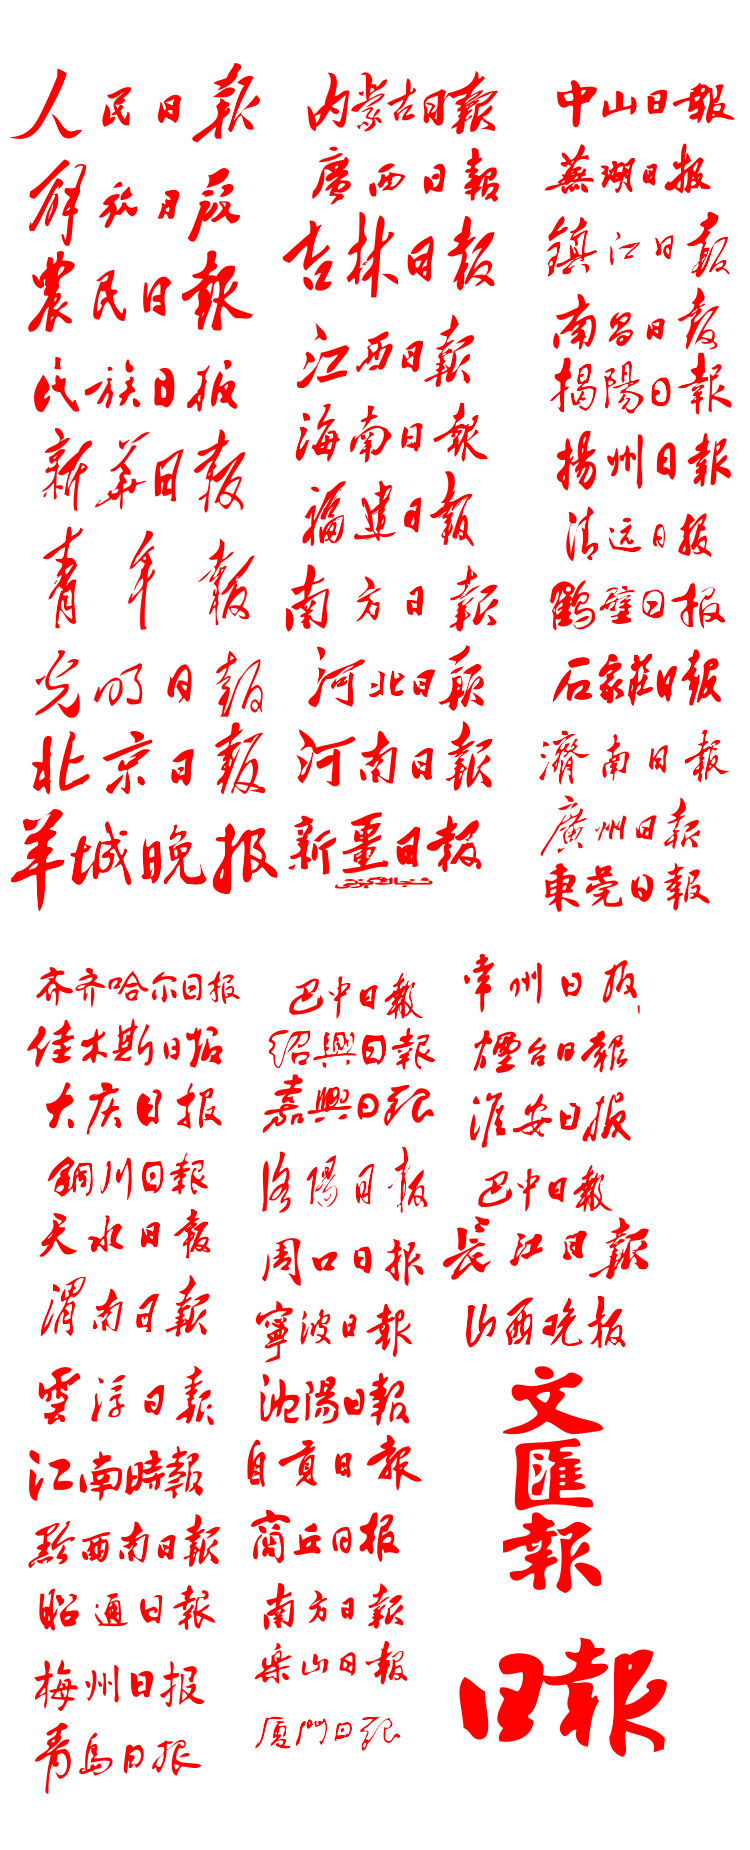 人民日報
解放日报
農民日報
民族日报
新华日報
青年報
光明日報
北京日報
羊城晚报
内蒙古日報
廣西日報
吉林日报
江西日報
海南日報
福建日報
南方日報
河北日報
河南日報
新疆日報
中山日報
蕪湖日报
鎮江日報
南昌日報
揭陽日報
揚州日報
清远日报
鹤壁日报
石家莊日報
濟南日报
廣州日報
東莞日報
齐齐哈尔日报
佳木斯日报
大庆日报
铜川日報
天水日報
渭南日報
雲浮日報
江南時報
黔西南日報
昭通日報
梅州日报
青島日报
巴中日報
紹興日報
嘉興日報
洛陽日報
周口日报
寧波日報
沈陽日報
自貢日報
商丘日报
南方日報
乐山日報
厦門日報
常州日报
煙台日報
淮安日报
巴中日報
長江日報
山西晚报
文
匯
報
日報